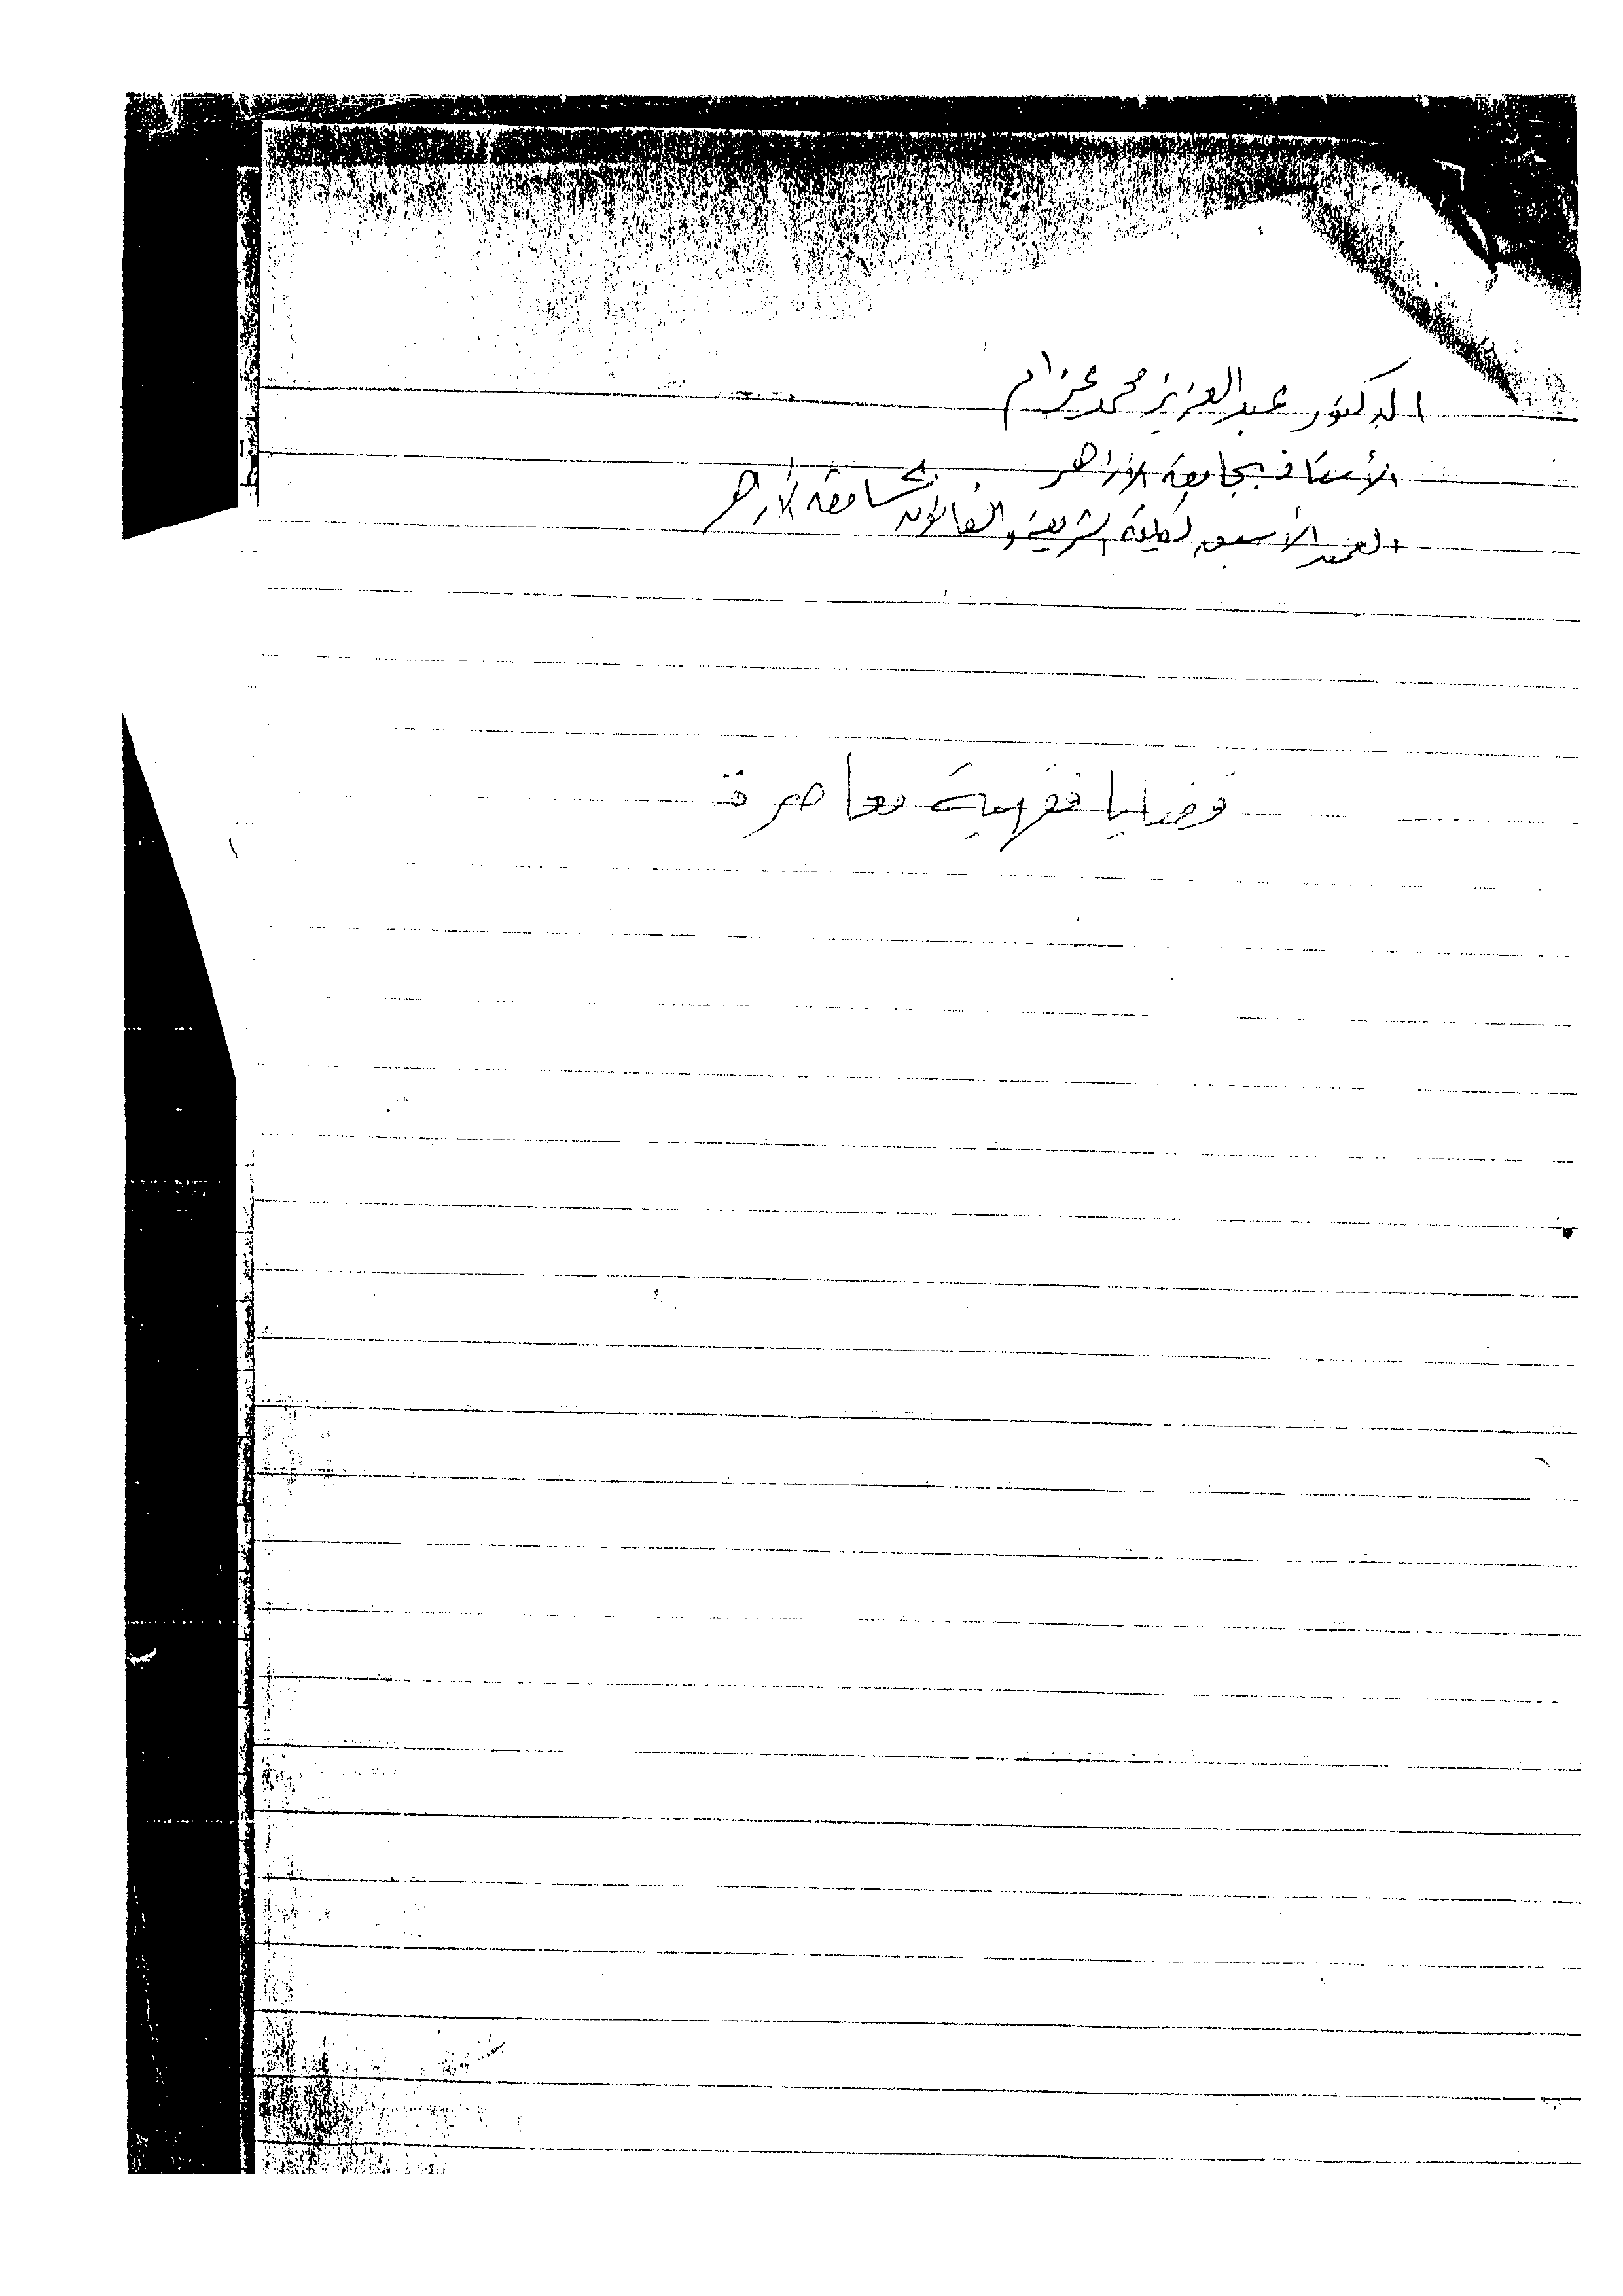 الدكتور عبد العزيز محمد عزام
الأستاذ بجامعة الأزهر
العميد الأسبق لكلية الشريعة والقانون بجامعة الأزهر
قضايا فقهية معاصرة